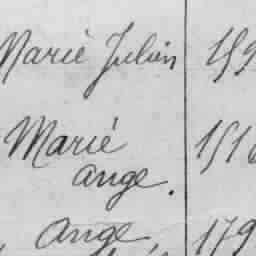 Marie Julien
Marié
ange.
Ange, 179